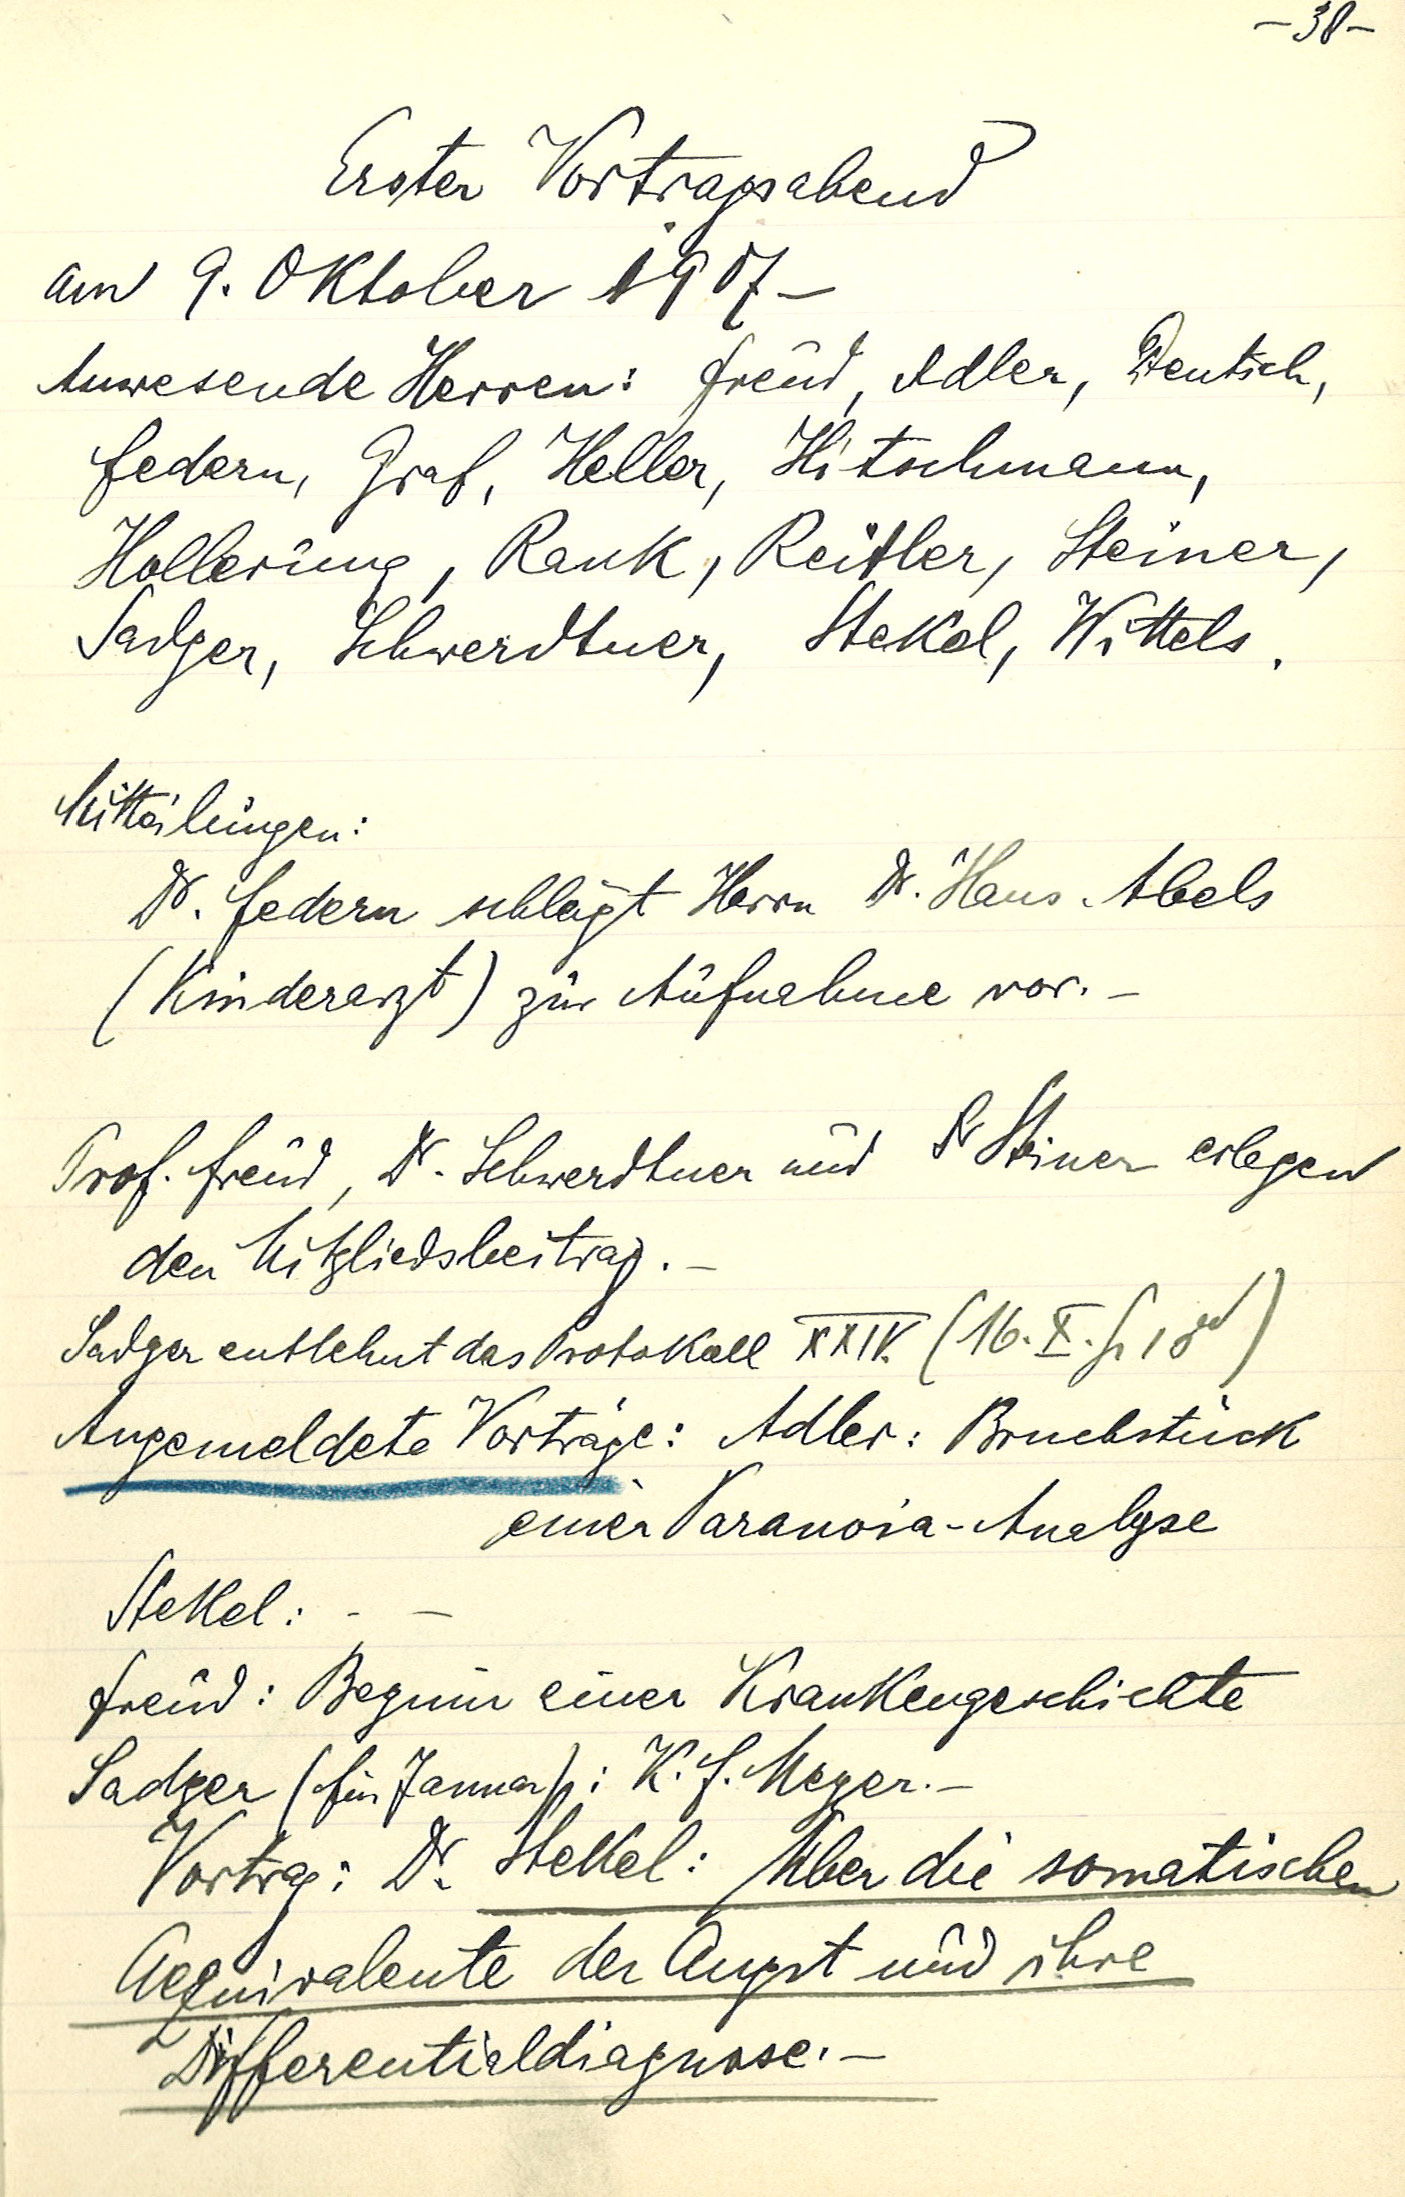 - 38 -
Erster Vortragsabend
am 9. Oktober 1907 -
Anwesende Herren: Freud, Adler, Deutsch,
Federn, Graf, Heller, Hitschmann,
Hollerung, Rank, Reitler, Steiner,
Sadger, Schwerdtner, Stekel, Wittels.
Mitteilungen:
Dr. Federn schlägt Herrn Dr. Hans Abels
(Kinderarzt) zur Aufnahme vor. -
Prof. Freud, Dr. Schwerdtner und Dr Steiner erlegen
den Mitgliedsbeitrag. -
Sadger entlehnt das Protokoll XXIV. (16. X.
Angemeldete Vorträge: Adler: Bruchstück
einer Paranoia-Analyse
Stekel: - -
Freud: Beginn einer Krankengeschichte
Sadger (für Januar): K. F. Meyer. -
Vortrag: Dr. Stekel: Über die somatischen
Aequivalente der Angst und ihre
Differentialdiagnose. -